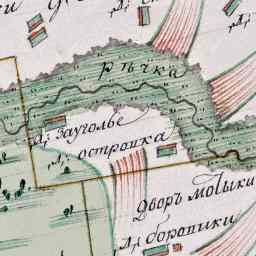 рѣчка
д: зауголье
д: островка
дворъ мотыки
д: боровики